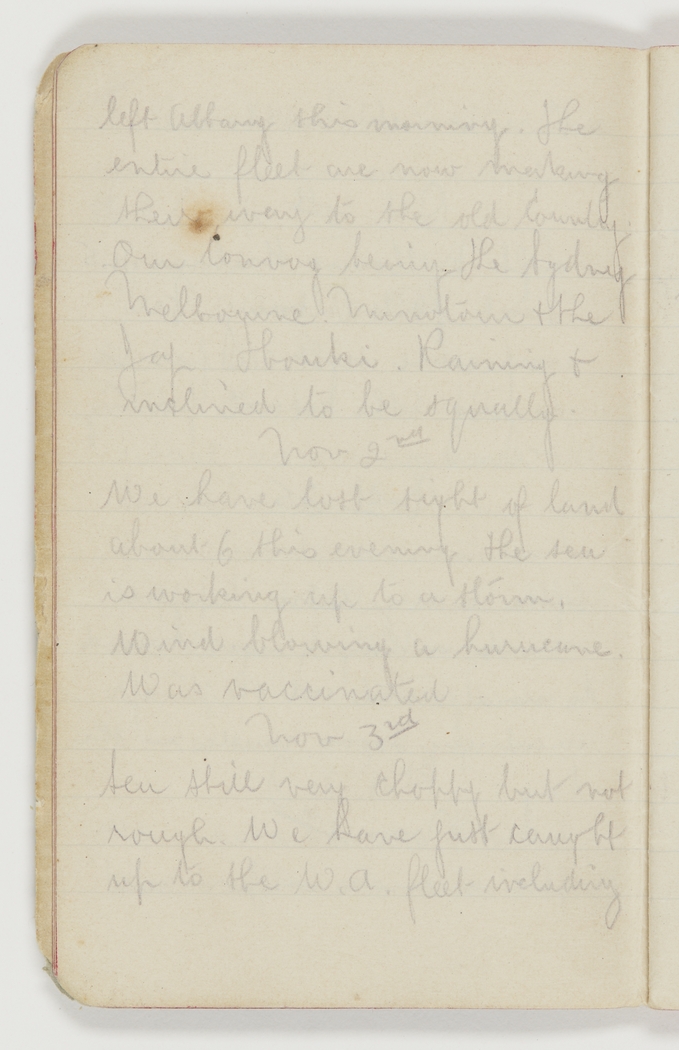 left Albany this morning. The
entire fleet are now making
their way to the old Country.
Our Convoy being the Sydney
Melbourne. Minotaur & the
Jap Ibouki. Raining &
inclined to be squally.
Nov 2nd
We have lost sight of land
about 6 this evening the sea
is working up to a storm.
Wind blowing a hurricane.
Was vaccinated
Nov 3rd
Sea still very choppy but not
rough. We have just caught
up to the W.A. fleet including